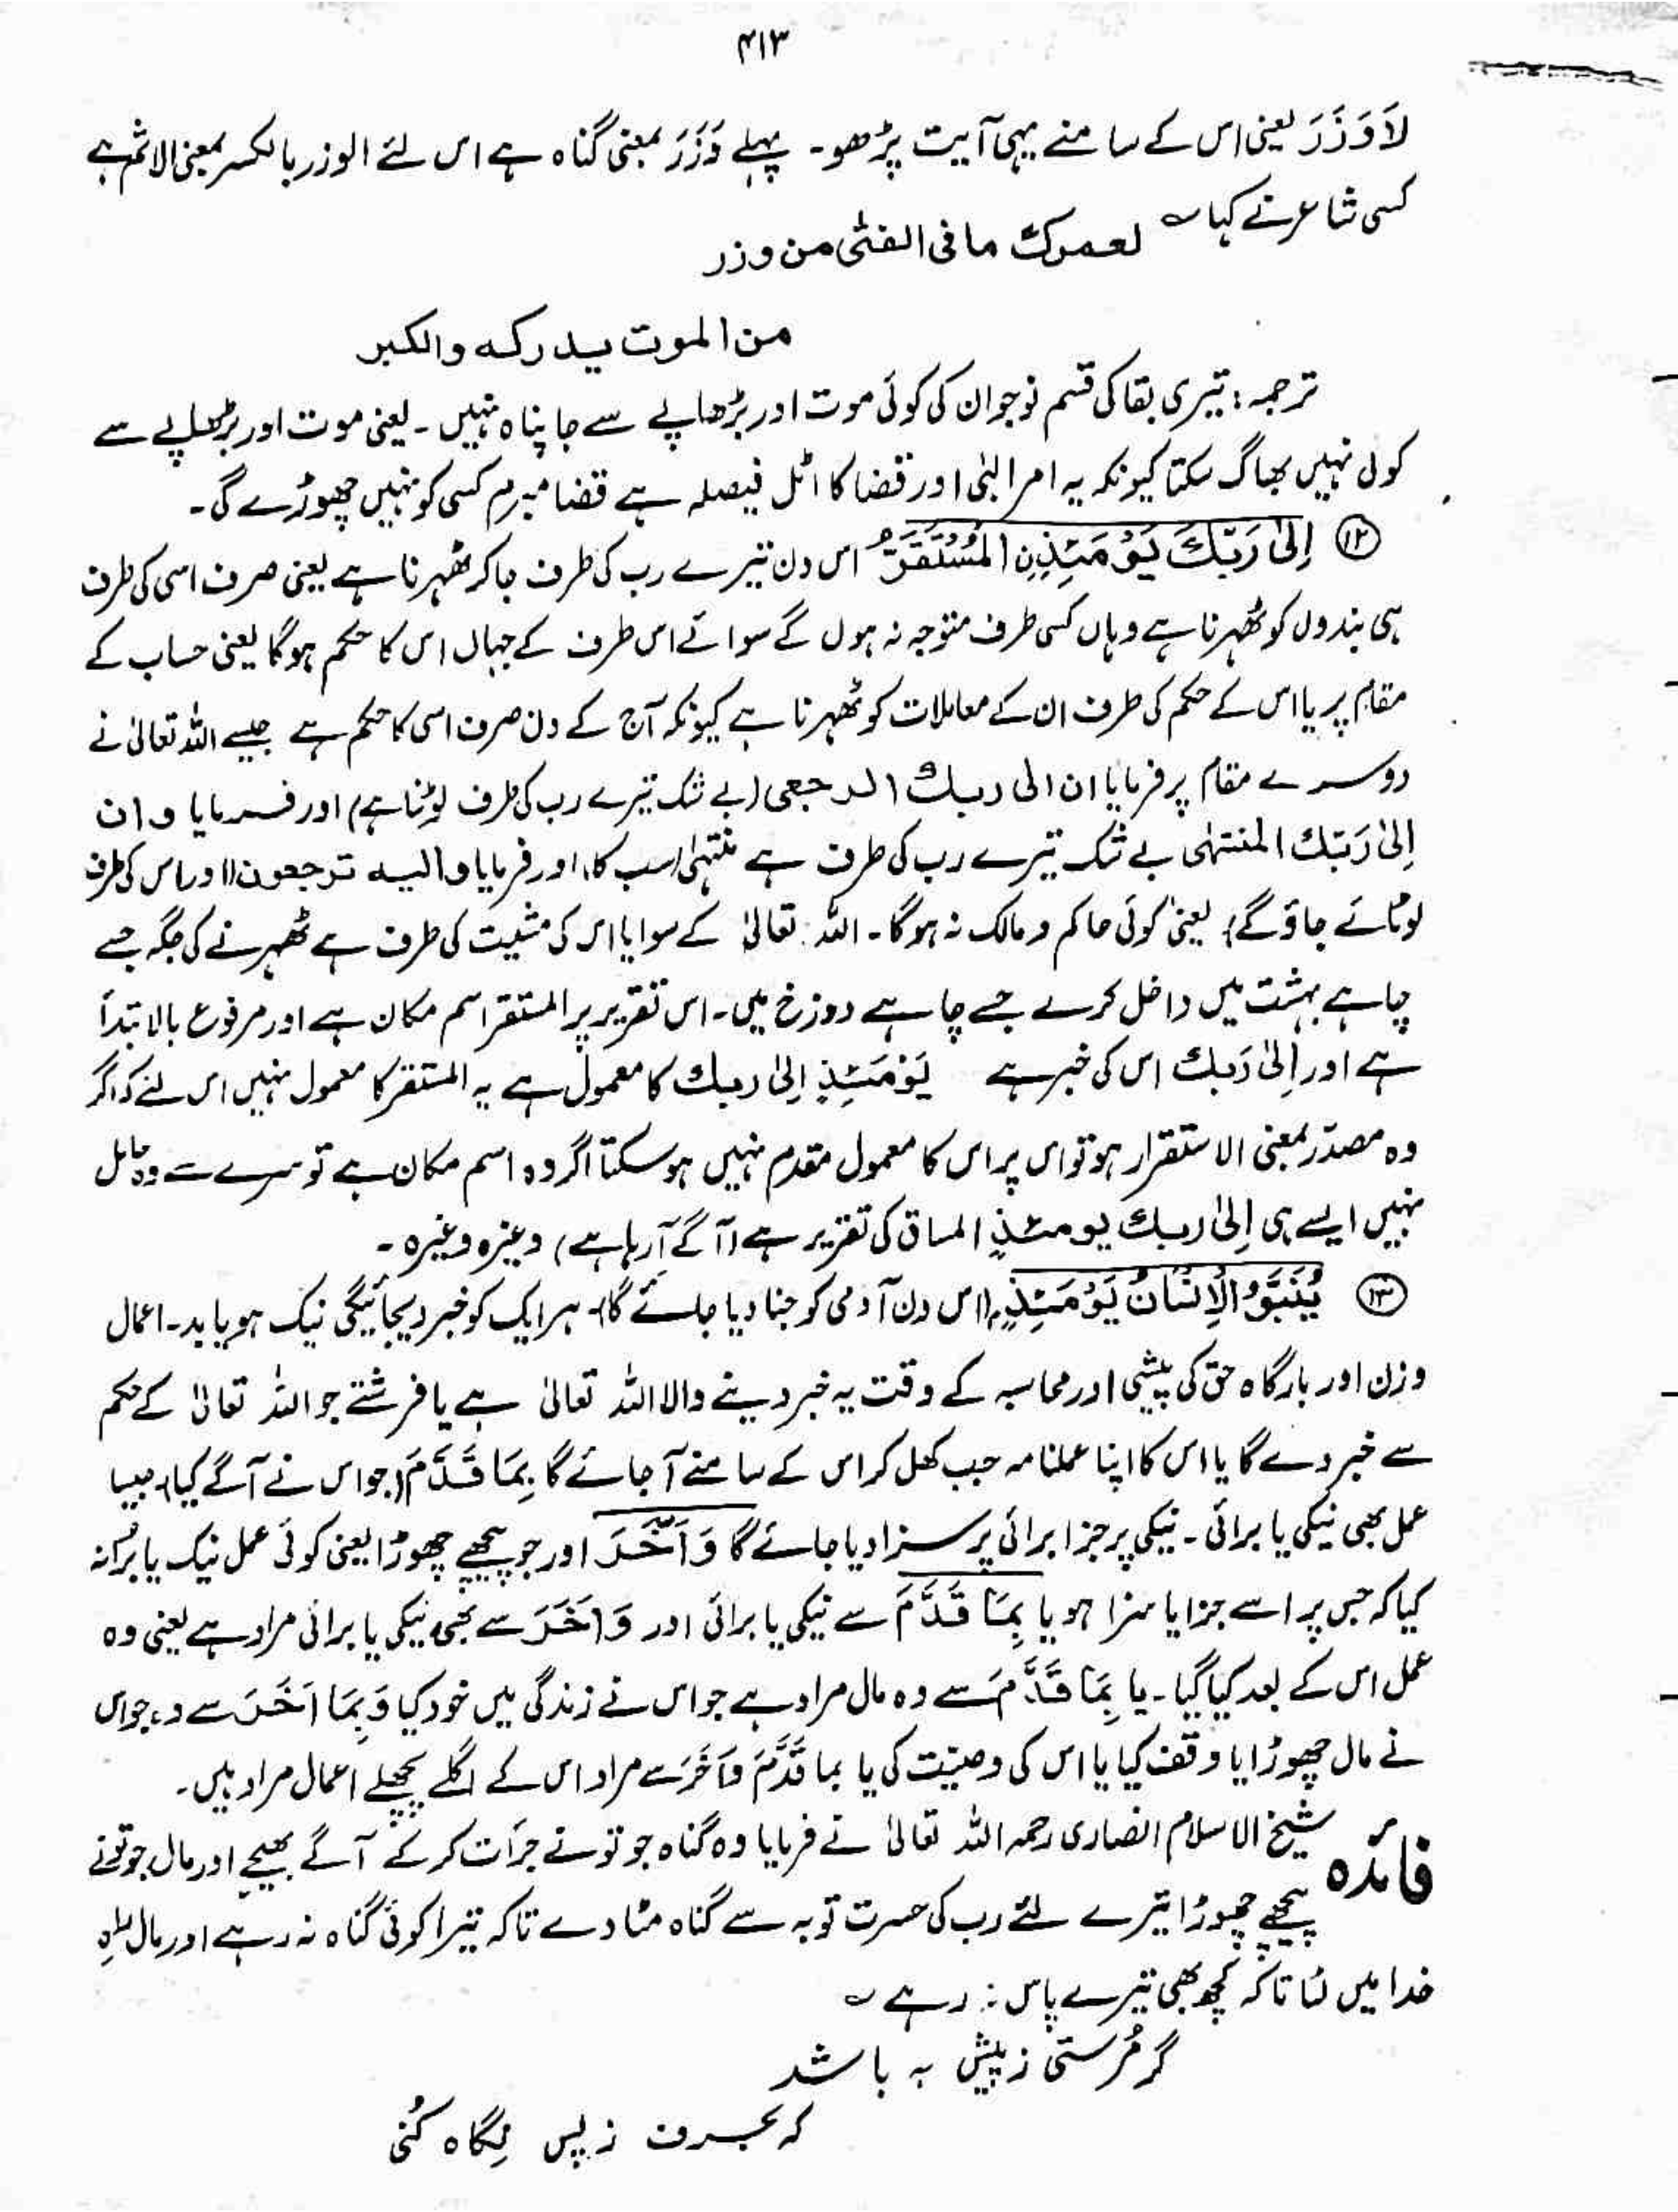 ۴۱۳
لَا وَزَرَ یعنی اس کے سامنے یہی آیت پڑھو۔ پہلے وَزَرَ بمعنی گناہ ہے اس لئے الوزر بالکسر بمعنی الاثم ہے
کسی شاعر نے کہا ؎ لعمرک ما فی الفتٰی من وزر
من الموت یدرکہ والکبر
ترجمہ: تیری بقا کی قسم نوجوان کی کوئی موت اور بڑھاپے سے جا پناہ نہیں۔ یعنی موت اور بڑھاپے سے
کوئی نہیں بھاگ سکتا کیونکہ یہ امر الٰہی اور قضا کا اٹل فیصلہ ہے قضا مبرم کسی کو نہیں چھوڑے گی۔
⑫ اِلٰی رَبِّكَ یَوْمَئِذِنِ الْمُسْتَقَرُّ اس دن تیرے رب کی طرف جا کر ٹھہرنا ہے یعنی صرف اسی کی طرف
ہی بندوں کو ٹھہرنا ہے وہاں کسی طرف متوجہ نہ ہوں گے سوائے اس طرف کے جہاں اس کا حکم ہوگا یعنی حساب کے
مقام پر یا اس کے حکم کی طرف ان کے معاملات کو ٹھہرنا ہے کیونکہ آج کے دن صرف اسی کا حکم ہے جیسے اللہ تعالیٰ نے
دوسرے مقام پر فرمایا ان الی ربك الرجعی (بے شک تیرے رب کی طرف لوٹنا ہے) اور فرمایا و ان
اِلٰی رَبِّكَ المنتہٰی بے شک تیرے رب کی طرف ہے منتہٰی (سب کا) اور فرمایا والیہ ترجعون (اور اس کی طرف
لوٹائے جاؤ گے) یعنی کوئی حاکم و مالک نہ ہوگا۔ اللہ تعالیٰ کے سوا یا اس کی مشیت کی طرف ہے ٹھہرنے کی جگہ جسے
چاہے بہشت میں داخل کرے جسے چاہے دوزخ میں۔ اس تقریر پر المستقر اسم مکان ہے اور مرفوع بالابتدأ
ہے اور اِلٰی رَبك اس کی خبر ہے یَوْمَئِذٍ اِلٰی ربك کا معمول ہے یہ المستقر کا معمول نہیں اس لئے کہ اگر
وہ مصدر بمعنی الاستقرار ہو تو اس پر اس کا معمول مقدم نہیں ہو سکتا اگر وہ اسم مکان ہے تو سرے سے وہ عامل
نہیں ایسے ہی اِلٰی ربك یومئذٍ المساق کی تقریر ہے (آگے آ رہا ہے) وغیرہ وغیرہ۔
⑬ یُنَبَّؤُ الْاِنْسَانُ یَوْمَئِذٍۭ (اس دن آدمی کو جتا دیا جائے گا)۔ ہر ایک کو خبر دیجائیگی نیک ہو یا بد۔ اعمال
وزن اور بارگاہ حق کی پیشی اور محاسبہ کے وقت یہ خبر دینے والا اللہ تعالیٰ ہے یا فرشتے جو اللہ تعالیٰ کے حکم
سے خبر دے گا یا اس کا اپنا عملنامہ جب کھل کر اس کے سامنے آ جائے گا بِمَا قَدَّمَ (جو اس نے آگے کیا) جیسا
عمل بھی نیکی یا برائی۔ نیکی پر جزا برائی پر سزا دیا جائے گا وَاَخَّرَ اور جو پیچھے چھوڑا یعنی کوئی عمل نیک یا برا نہ
کیا کہ جس پر اسے جزا یا سزا ہو یا بِمَا قَدَّمَ سے نیکی یا برائی اور وَاَخَّرَ سے بھی نیکی یا برائی مراد ہے یعنی وہ
عمل اس کے بعد کیا گیا۔ یا بِمَا قَدَّمَ سے وہ مال مراد ہے جو اس نے زندگی میں خود کیا وَبِمَا اَخَّرَ سے وہ جو اس
نے مال چھوڑا یا وقف کیا یا اس کی وصیّت کی یا بما قَدَّمَ وَاَخَّرَ سے مراد اس کے اگلے پچھلے اعمال مراد ہیں۔
فائدہ شیخ الاسلام انصاری رحمہ اللہ تعالیٰ نے فرمایا وہ گناہ جو تو نے جرأت کر کے آگے بھیجے اور مال جو تو نے
پیچھے چھوڑا تیرے لئے رب کی حسرت توبہ سے گناہ مٹا دے تاکہ تیرا کوئی گناہ نہ رہے اور مال راہِ
خدا میں لٹا تاکہ کچھ بھی تیرے پاس نہ رہے ؎
گر فرستی ز پیش بہ باشد
کہ بحسرت ز پس نِگاہ کُنی